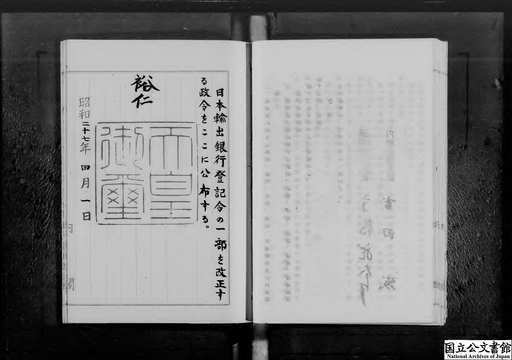 日本輸出銀行登記令の一部を改正す
る政令をここに公布する。
裕仁
天皇
御璽
昭和二十七年四月一日
内閣
国立公文書館
National Archives of Japan